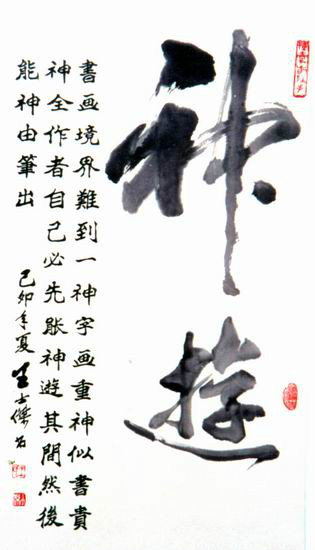 神遊
書画境界難到一神字画重神似書貴
神全作者自己必先神遊其間然後
能神由筆出
己卯年夏王士傑